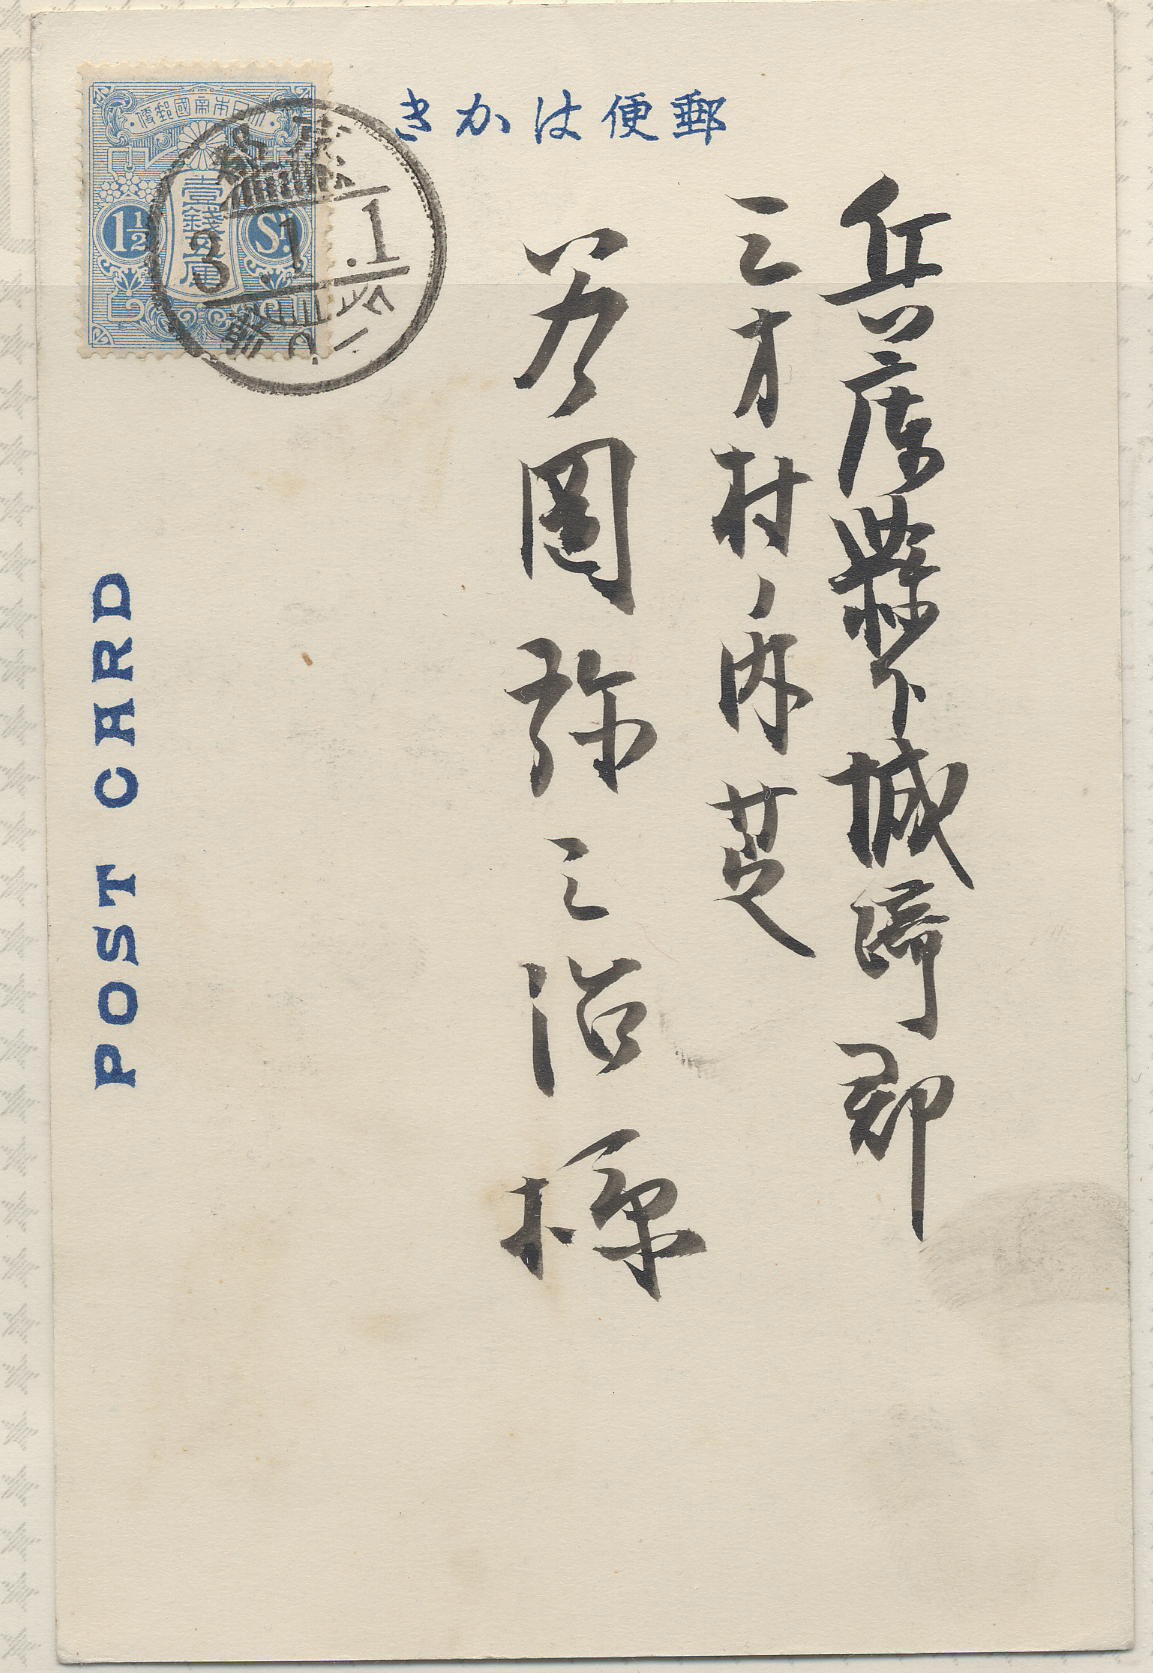 郵便はかき
兵庫縣下城崎郡
三方村ノ内芝
岡弥三治様
POST CARD
大日本帝國郵便
壹錢五厘
1½ Sn
3.1.1